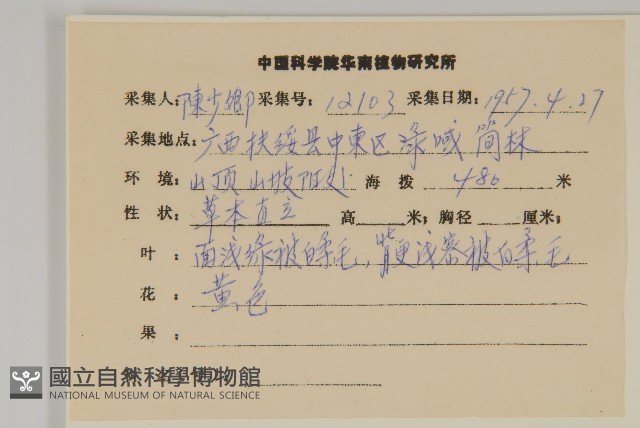 中国科学院华南植物研究所
采集人：陳少卿 采集号：12103 采集日期：1957.4.27
采集地点：广西扶绥县中東区渌 林
环 境：山顶山坡 海 拨 480 米
性 状：草本直立 高 米；胸径 厘米；
叶 ：面浅绿被白柔毛，背 浅 被白柔毛
花 ：黄色
果 ：
國立自然科學博物館
NATIONAL MUSEUM OF NATURAL SCIENCE